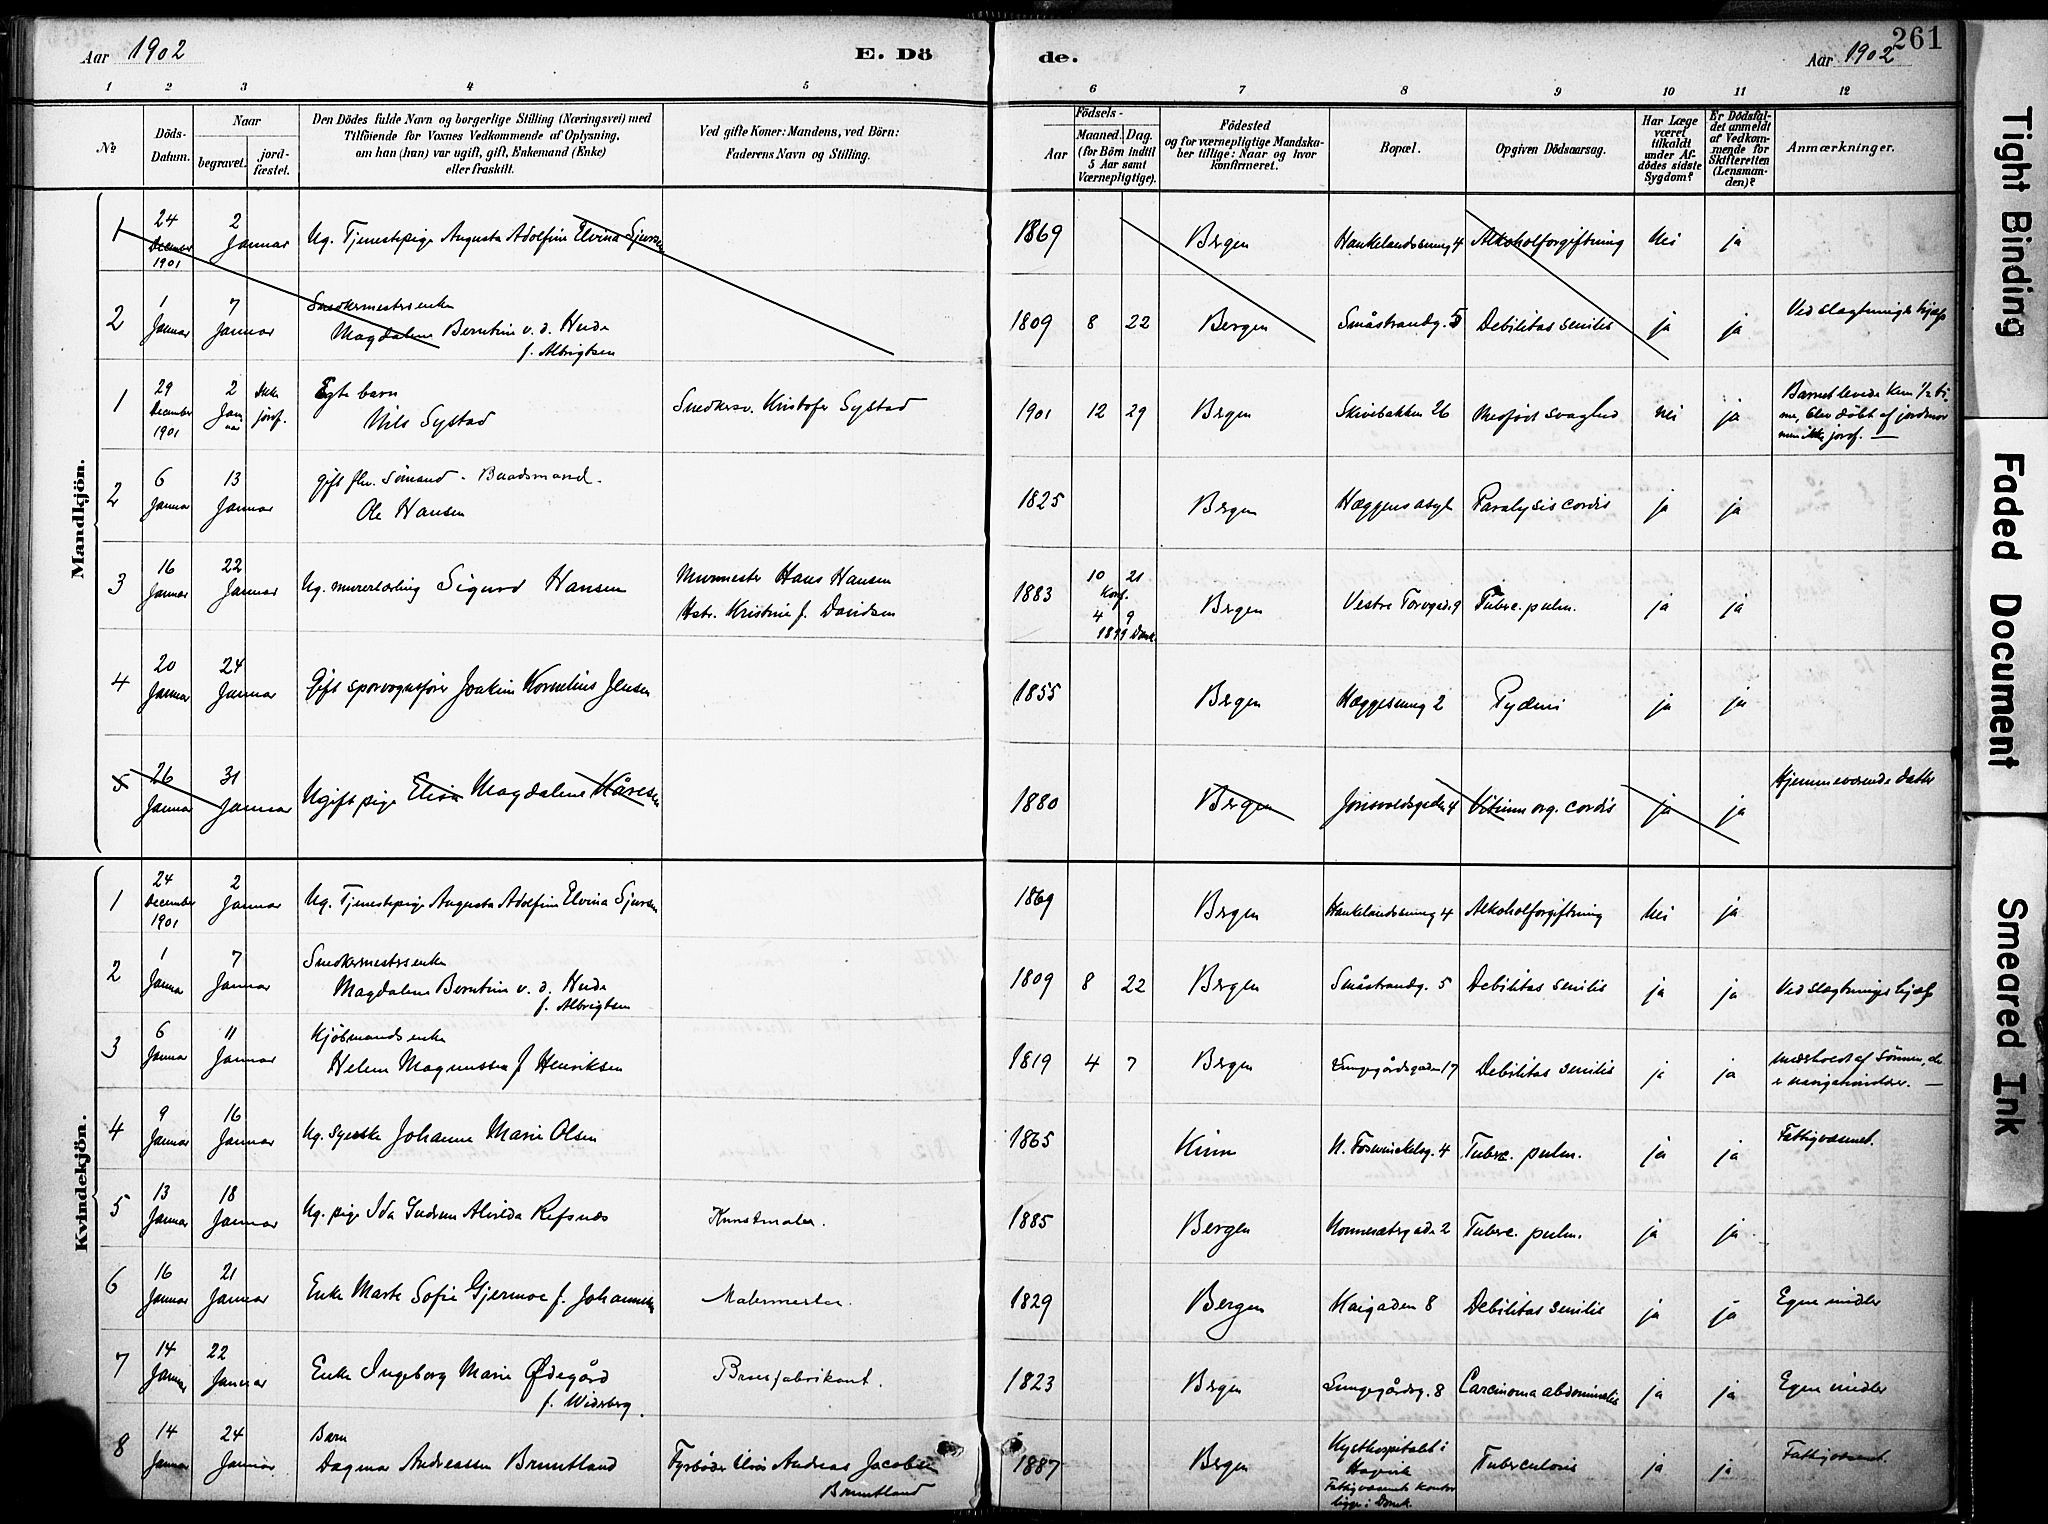 Aar 1902
E. Dö
de.
Aar 1902
261
1 2 3 4 5 6 7 8 9 10 11 12
№
Döds-Datum.
Naar
begravet.
jord-fæstet.
Den Dödes fulde Navn og borgerlige Stilling (Næringsvei) med
Tilföiende for Voxnes Vedkommende af Oplysning,
om han (hun) var ugift, gift, Enkemand (Enke)
eller fraskilt.
Ved gifte Koner: Mandens, ved Börn:
Faderens Navn og Stilling.
Aar
Födsels-
Maaned. Dag.
(for Börn indtil
5 Aar samt
Værnepligtige).
Födested
og for værnepligtige Mandska-
ber tillige: Naar og hvor
konfirmeret.
Bopæl.
Opgiven Dödsaarsag.
Har Læge
været
tilkaldt
under Af-
dödes sidste
Sygdom?
Er Dödsfal-
det anmeldt
af Vedkom-
mende for
Skifteretten
(Lensman-
den)?
Anmærkninger.
Mandkjön.
1 24 December 1901 2 Januar Ug. Tjenestepige Augusta Adolfine Elvina Sjursen 1869 Bergen Haukelandsveieng 4 Alkoholforgiftning Nei ja
2 1 Januar 7 Januar Snedkermestersenke
Magdalene Berntine v. d. Heide
f. Albrigtsen 1809 8 22 Bergen Småstrandg. 5 Debilitas senilis ja ja Ved slægtninges hjælp
1 29 December 1901 2 Januar Ikke jordf. Egte barn
Nils Systad Snedkersv. Kristofer Systad 1901 12 29 Bergen Skivebakken 26 Medfødt svaghed nei ja Barnet levede kun 1/2 ti-
me, blev døbt af jordmor
men ikke jordf. —
2 6 Januar 13 Januar gift fhv. Sømand - Baadsmand.
Ole Hansen 1825 Bergen Hæggens asyl Paralysis cordis ja ja
3 16 Januar 22 Januar Ug. murerlærling Sigurd Hansen Murmester Hans Hansen
Hstr. Kristine f. Davidsen 1883 10 21
Konf.
4 9
1899 Domk. Bergen Vestre Torvgade 9 Tuberc. pulm. ja ja
4 20 Januar 24 Januar Gift sporvognsfører Joakim Kornelius Jensen 1855 Bergen Hæggesmug 2 Pyæmi ja ja
5 26 Januar 31 Januar Ugift pige Elisa Magdalene Håresen 1880 Bergen Jonsvoldsgaden 4 Vitium org. cordis ja ja Hjemmeværende datter
Kvindekjön.
1 24 December 1901 2 Januar Ug. Tjenestepige Augusta Adolfine Elvina Sjursen 1869 Bergen 4 Alkoholforgiftning Nei ja
2 1 Januar 7 Januar Snedkermestersenke
Magdalene Berntine v. d. Heide
f. Albrigtsen 1809 8 22 Bergen Småstrandg. 5 Debilitas senilis ja ja Ved slægtninges hjælp
3 6 Januar 11 Januar Kjøbmandsenke
Helene Magnussen f Henriksen 1819 4 7 Bergen Lungegårdsgaden 17 Debilitas senilis ja ja Underholdt af Sønnen, de
4 9 Januar 16 Januar Ug. Syerske Johanne Marie Olsen 1865 Kinn N. Foswinckelsg. 4 Tuberc. pulm. ja ja Fattigvæsenet.
5 13 Januar 18 Januar Ug. pige Ida Gudrun Alvilda Refsnæs Kunstmaler. 1885 Bergen 2 Tuberc. pulm. ja ja
6 16 Januar 21 Januar Enke Marte Sofie Gjermoe f. Johannesen Malermester. 1829 Bergen Kaigaden 8 Debilitas senilis ja ja Egne midler
7 14 Januar 22 Januar Enke Ingeborg Marie Ødegård
f. Widsberg. Brusfabrikant. 1823 Bergen Lungegårdsg. 8 Carcinoma abdominalis ja ja Egne midler
8 14 Januar 24 Januar Barn
Dagmar Andreassen Bruntland Fyrbøder Andreas Jacobsen
Bruntland 1887 Bergen Kysthospitalet i
Hagevik
Fattigvæsenets kontor
ligger i Domk. Tuberculosis ja ja Fattigvæsenet.
Tight Binding
Faded Document
Smeared Ink